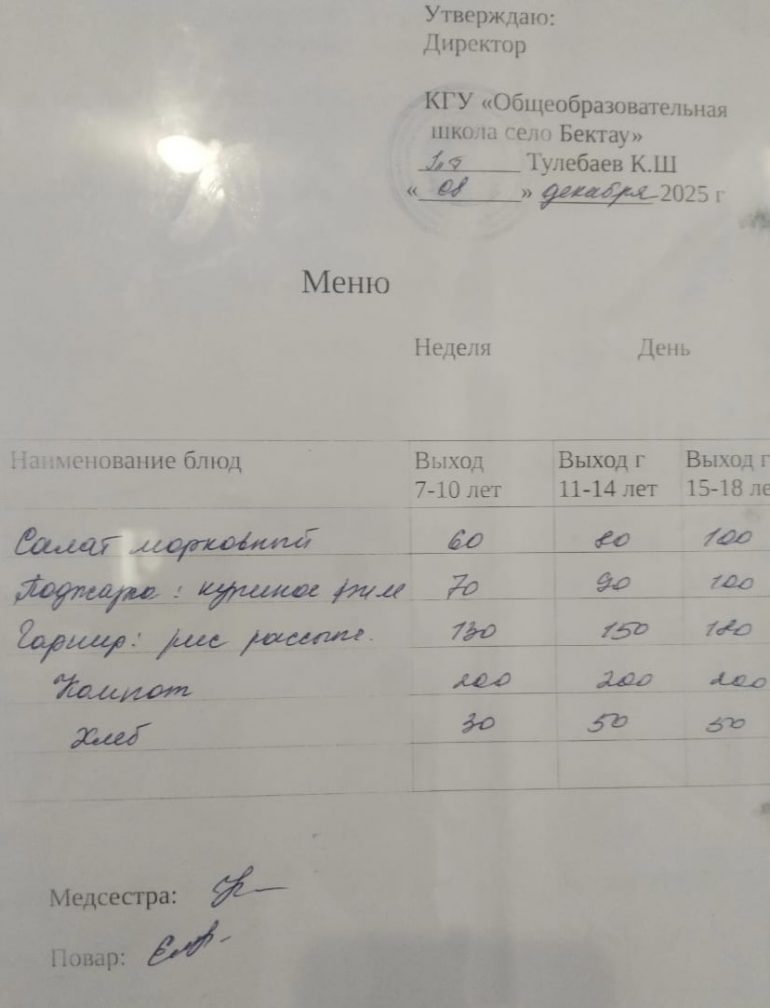 Утверждаю:
Директор
КГУ «Общеобразовательная
школа село Бектау»
Тулебаев К.Ш
« 08 » декабря 2025 г
Меню
Неделя День
Наименование блюд Выход 7-10 лет Выход г 11-14 лет Выход г 15-18 ле
Салат морковный 60 80 100
Поджарка: куриное филе 70 90 100
Гарнир: рис рассып. 130 150 180
Компот 200 200 200
Хлеб 30 50 50
Медсестра:
Повар: